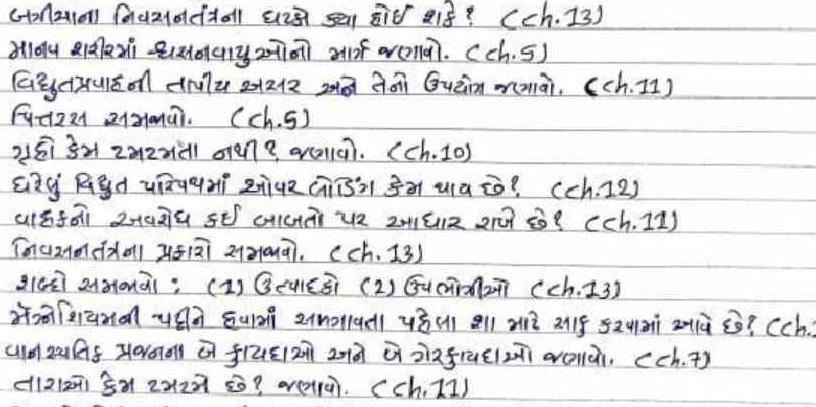 બગીચાના નિવસનતંત્રના ઘટકો ક્યા હોઈ શકે? (ch.13)
માનવ શરીરમાં શ્વસનવાયુઓનો માર્ગ જણાવો. (ch.5)
વિદ્યુતપ્રવાહની તાપીય અસર અને તેનો ઉપયોગ જણાવો. (ch.11)
પિત્તરસ સમજાવો. (ch.5)
ગ્રહો કેમ ટમટમતા નથી? જણાવો. (ch.10)
ઘરેલું વિદ્યુત પરિપથમાં ઓવર લોડિંગ કેમ થાય છે? (ch.12)
વાહકનો અવરોધ કઈ બાબતો પર આધાર રાખે છે? (ch.11)
નિવસનતંત્રના પ્રકારો સમજાવો. (ch.13)
શબ્દો સમજાવો : (1) ઉત્પાદકો (2) ઉપભોગીઓ (ch.13)
મેગ્નેશિયમની પટ્ટીને હવામાં સળગાવતા પહેલા શા માટે સાફ કરવામાં આવે છે? (ch.
વાનસ્પતિક પ્રજનનના બે ફાયદાઓ અને બે ગેરફાયદાઓ જણાવો. (ch.7)
તારાઓ કેમ ટમટમે છે? જણાવો. (ch.11)